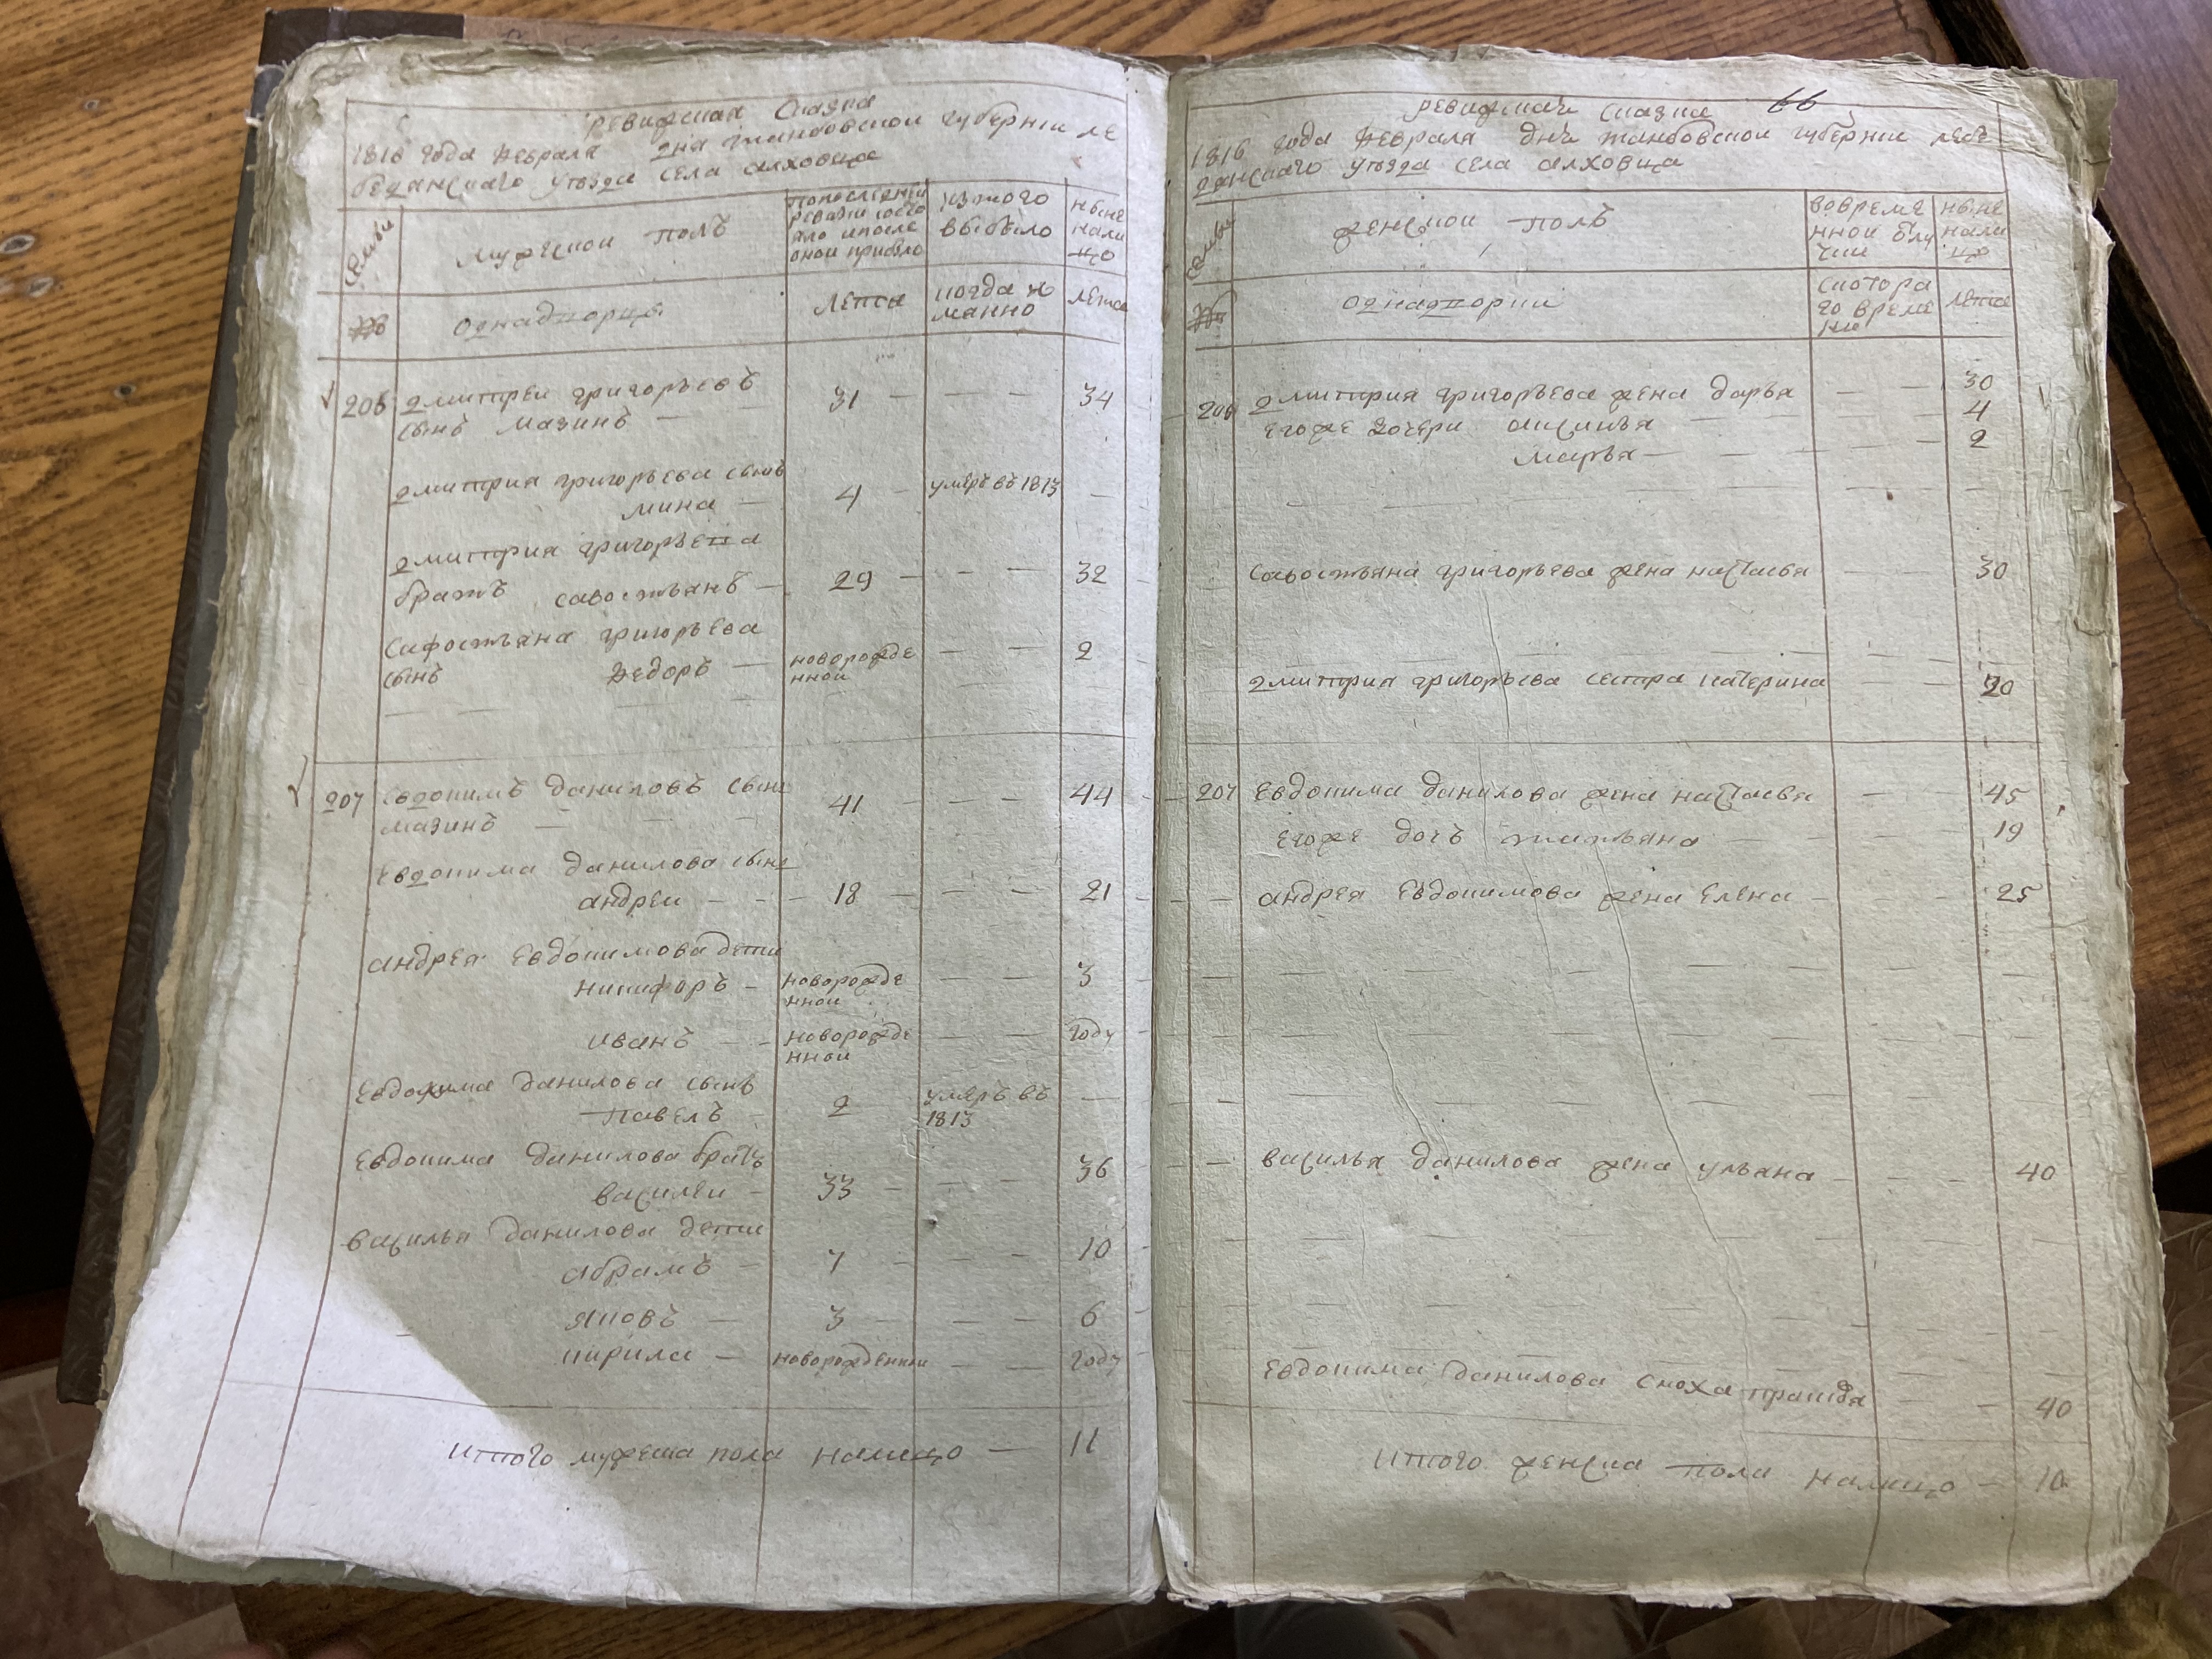 ревижская сказка
1816 года февраля дня тамбовской губернии ле
бедянскаго уѣзда села алховца
семьи
мужескои полъ
попоследнеи
ревизии состо
яло ипосле
онои прибыло
изтого
выбыло
ныне
нали
цо
№
однадворцы
лета
когда и
манно
лета
206 дмитреи григорьевъ
сынъ мазинъ — 31 — — — 34
дмитрия григорьева сынъ
мина — 4 — умеръ въ 1813 —
дмитрия григорьева
братъ савостьянъ — 29 — — — 32
сафостьяна григорьева
сынъ федоръ — новорожде
нной — — 2
207 евдокимъ даниловъ сынъ
мазинъ — 41 — — 44
евдокима данилова сынъ
андреи — — 18 — — — 21
андрея евдокимова дети
никифоръ — новорожде
нной — — 3
иванъ — новорожде
нной — — году
евдокима данилова сынъ
павелъ — 2 умеръ въ
1813 —
евдокима данилова братъ
василеи — 33 — — — 36
василья данилова дети
абрамъ — 7 — — — 10
яковъ — 3 — — — 6
кирила — новорожденни — — году
итого мужеска пола налицо — 11
ревижская сказка 66
1816 года февраля дня тамбовской губернии лебе
дянскаго уѣзда села алховца
семьи
женскои полъ
вовреме
нной отлу
чки
ныне
нали
цо
№
однадворки
скотора
го време
ни
лета
206 дмитрия григорьева жена дарья — — 30
егоже дочери аксинья — 4
марья — — — 2
савостьяна григорьева жена настасья — — 30
дмитрия григорьева сестра катерина — — 20
207 евдокима данилова жена настасья — — 45
егоже дочь татьяна — — 19
андрея евдокимова жена елена — — 25
василья данилова жена ульяна — — — 40
евдокима данилова сноха — — 40
итого женска пола налицо — 10